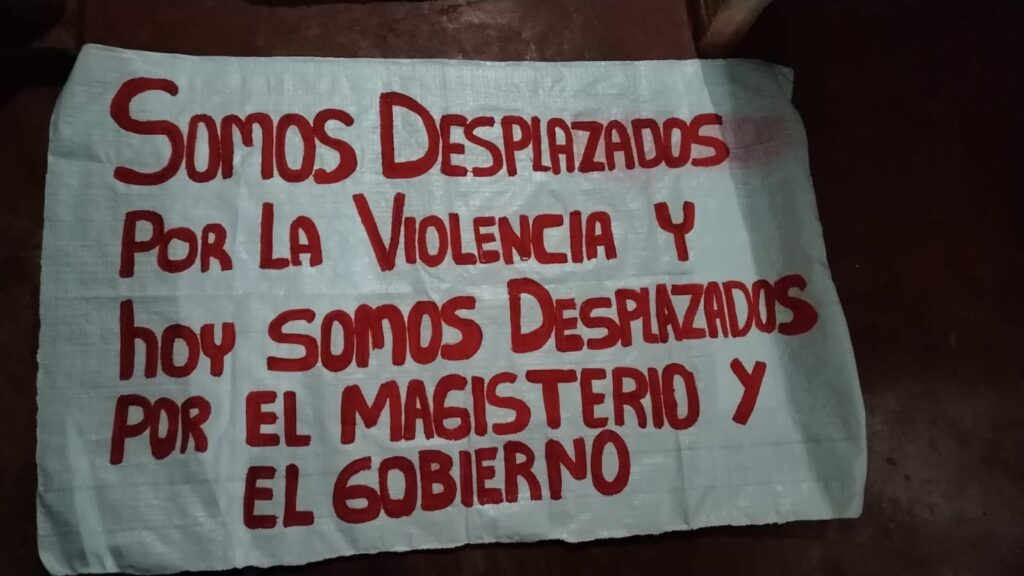 SOMOS DESPLAZADOS
POR LA VIOLENCIA Y
hoy SOMOS DESPLAZADOS
POR EL MAGISTERIO Y
EL GOBIERNO